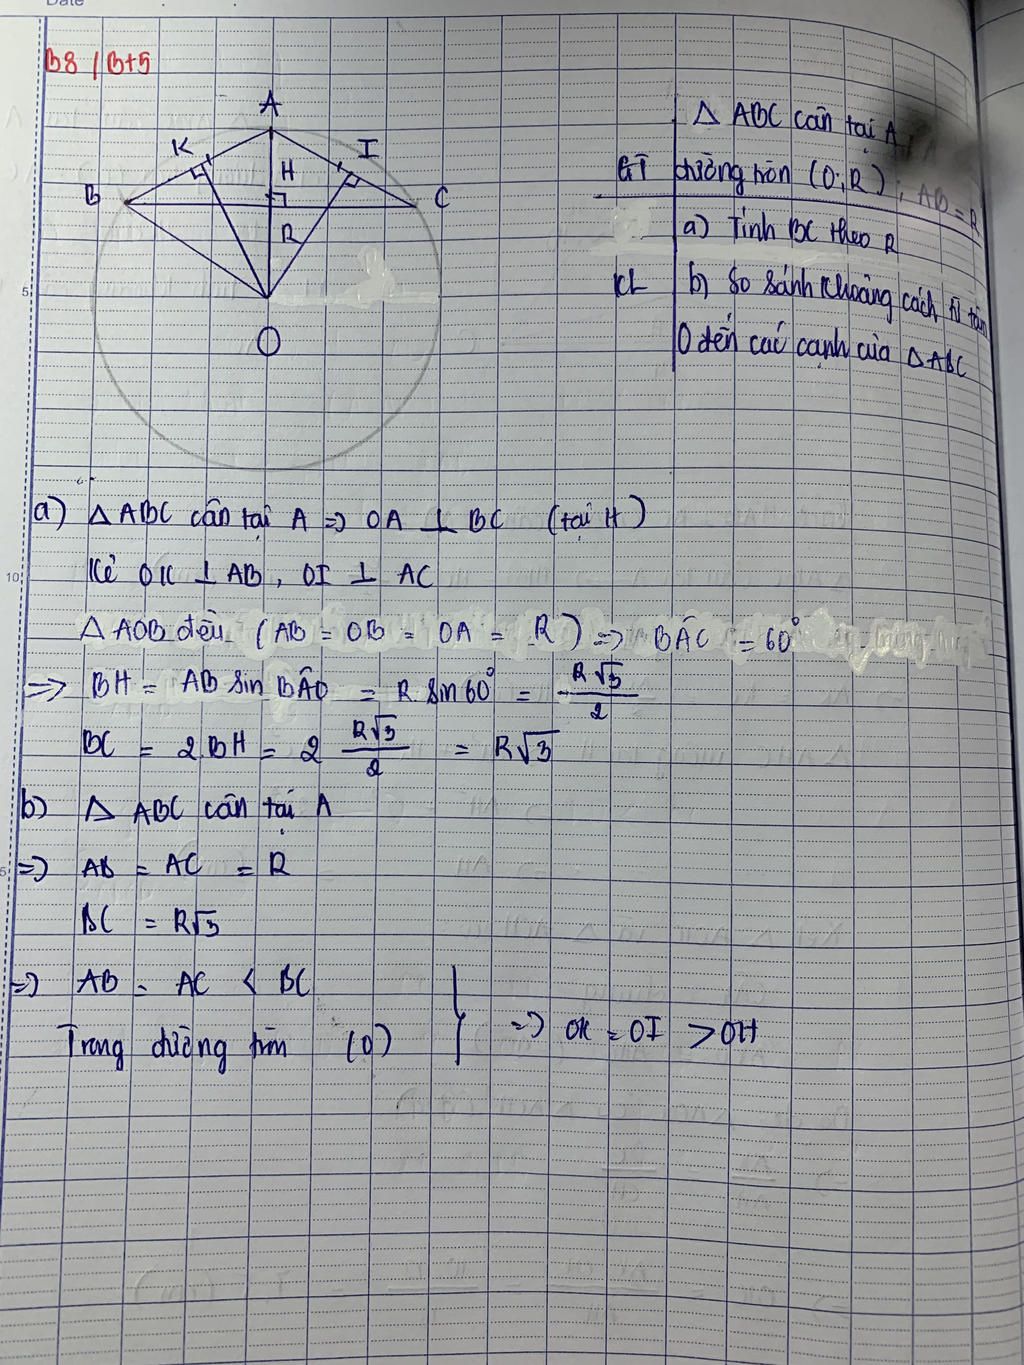 Date
B8 / B+5
A
K
I
H
B
C
R
O
△ ABC cân tại A
GT đường tròn (O; R), AB = R
a) Tính BC theo R
KL b) So sánh khoảng cách từ tâm
O đến các cạnh của △ ABC
5
a) △ ABC cân tại A => OA ⊥ BC (tại H)
10 Kẻ OK ⊥ AB, OI ⊥ AC
△ AOB đều. (AB = OB = OA = R) => BÂC = 60°
=> BH = AB sin BÂO = R sin 60° = R√3/2
BC = 2BH = 2 R√3/2 = R√3
b) △ ABC cân tại A
=> AB = AC = R
BC = R√3
=> AB = AC < BC
Trong đường tròn (O) } => OK = OI > OH